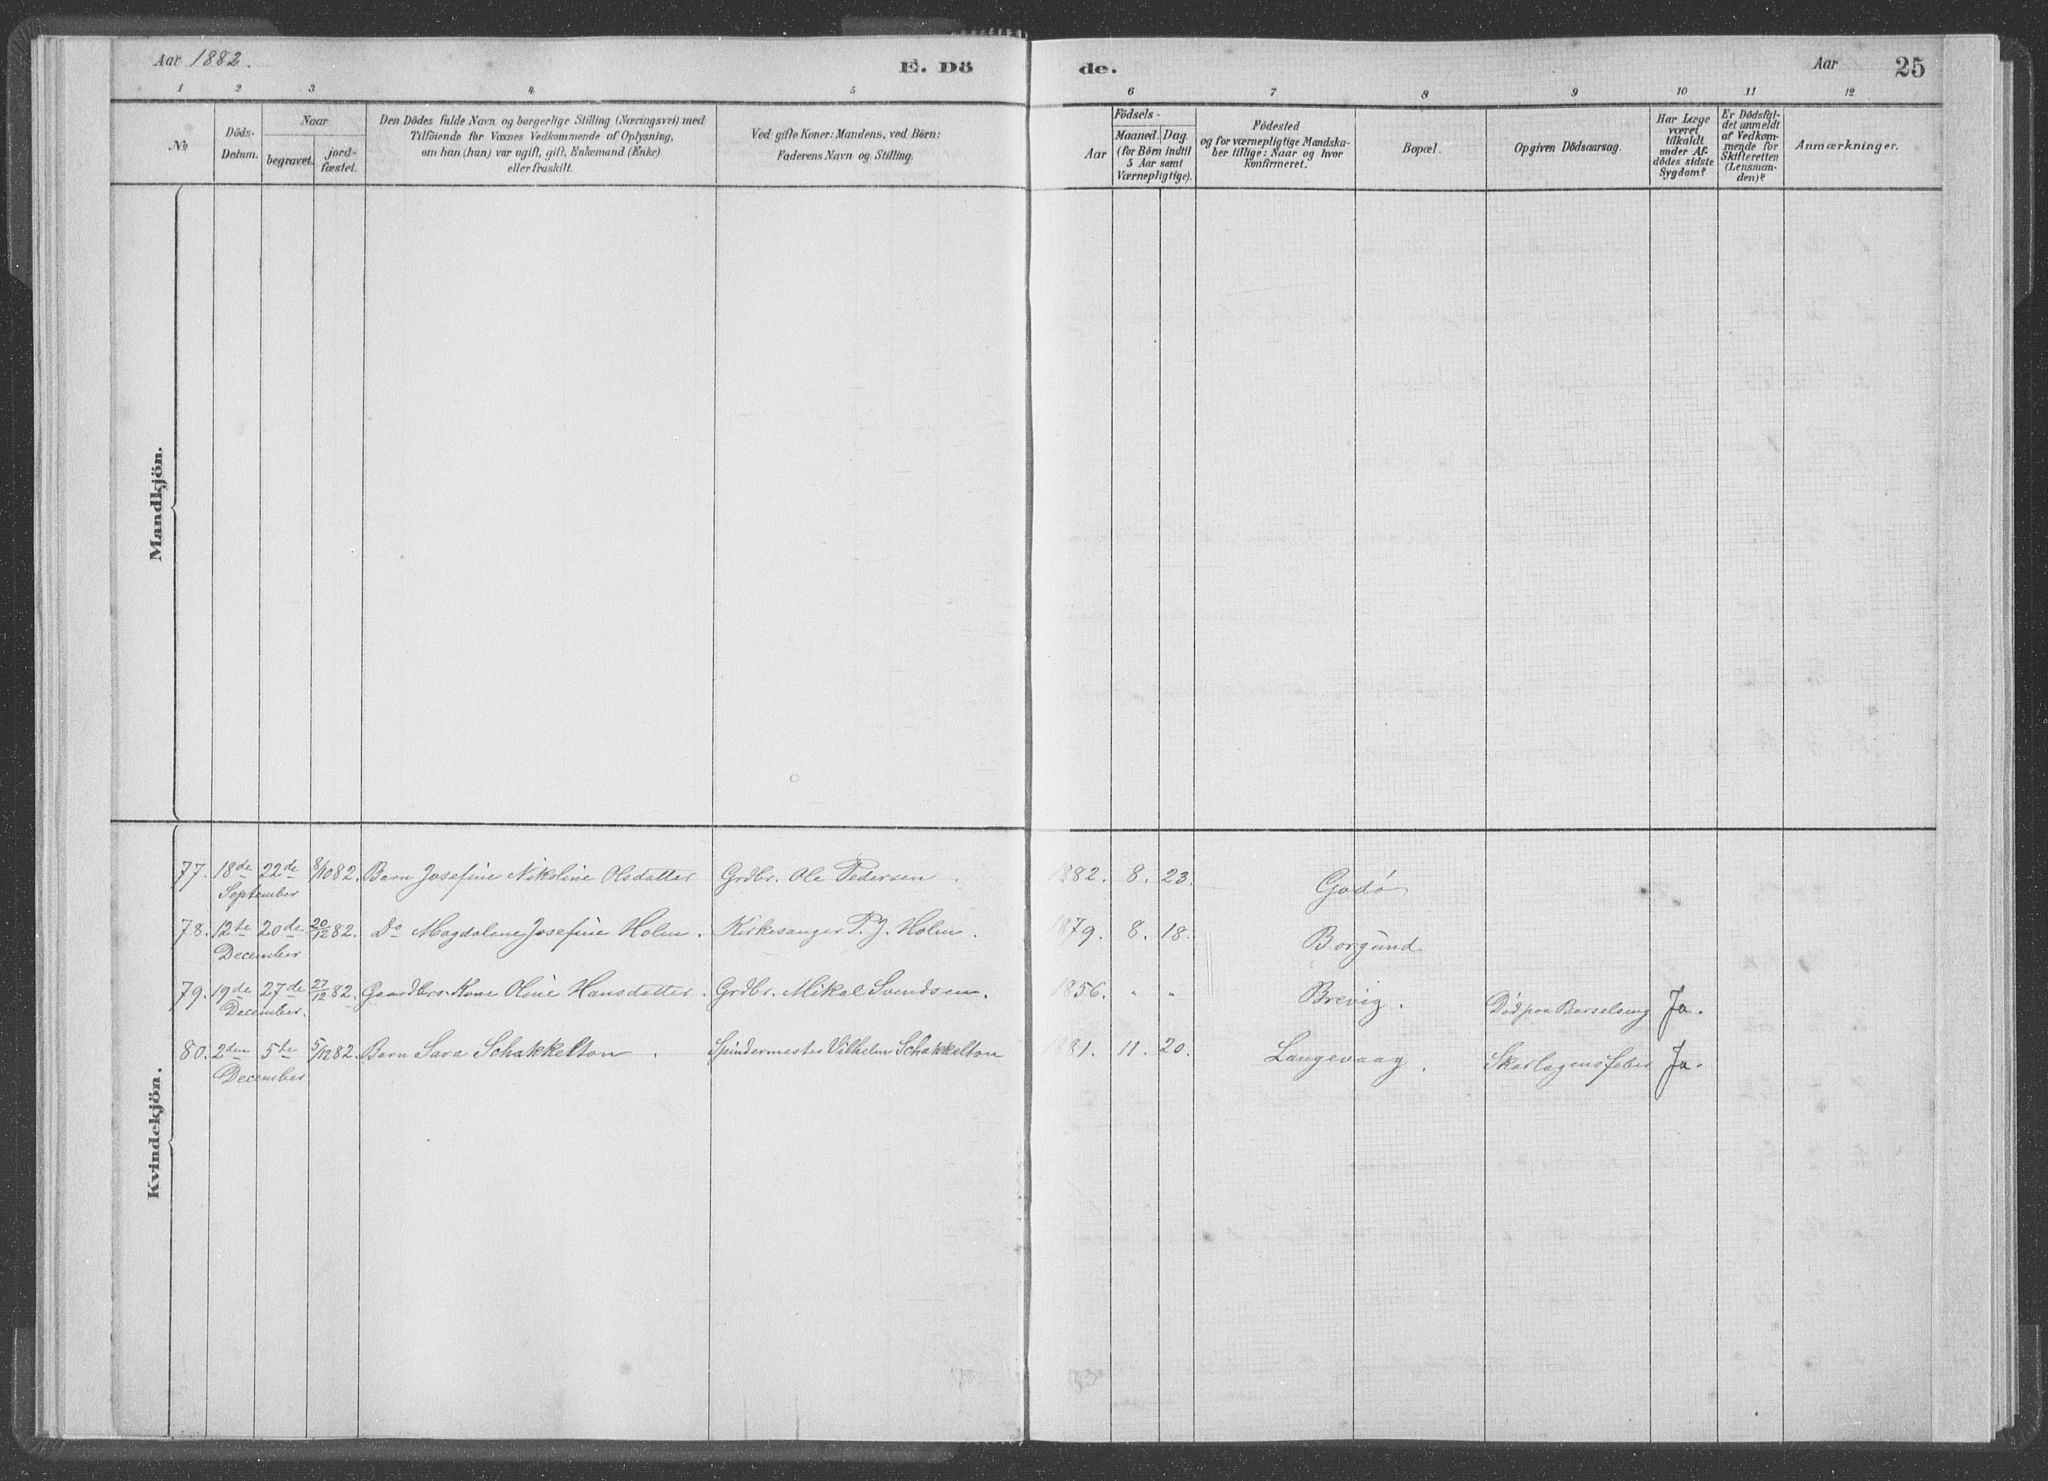 Aar 1882.
E. Dö
de.
Aar
25
1
2
3
4
5
6
7
8
9
10
11
12
No
Döds-
Datum.
Naar
begravet.
jord-
fæstet.
Den Dödes fulde Navn og borgerlige Stilling (Næringsvei) med
Tilföiende for Voxnes Vedkommende af Oplysning,
om han (hun) var ugift, gift, Enkemand (Enke)
eller fraskilt.
Ved gifte Koner: Mandens, ved Börn:
Faderens Navn og Stilling.
Födsels-
Aar
Maaned.
Dag.
(for Börn indtil
5 Aar samt
Værnepligtige).
Födested
og for værnepligtige Mandska-
ber tillige: Naar og hvor
konfirmeret.
Bopæl.
Opgiven Dödsaarsag.
Har Læge
været
tilkaldt
under Af-
dödes sidste
Sygdom?
Er Dödsfal-
det anmeldt
af Vedkom-
mende for
Skifteretten
(Lensman-
den)?
Anmærkninger.
Mandkjön.
Kvindekjön.
77. 18de 22de 8/10 82. Barn Josefine Nikoline Olsdatter Grdbr. Ole Pedersen. 1882. 8. 23. Godø
September
78. 12te 20de 20/12 82. Do Magdalene Josefine Holm. Kirkesanger P. J. Holm. 1879. 8. 18. Borgund
December
79. 19de 27de 27/12 82. Gaardbrs. Kone Oline Hansdatter. Grdbr. Mikal Svendsen. 1856. " " Brevig. Død paa Barselseng Ja.
December.
80. 2den 5te 5/12 82. Barn Sara Schakkelton. Spindermester Vilhelm Schakkelton 1881. 11. 20. Langevaag. Skarlagensfeber Ja.
December